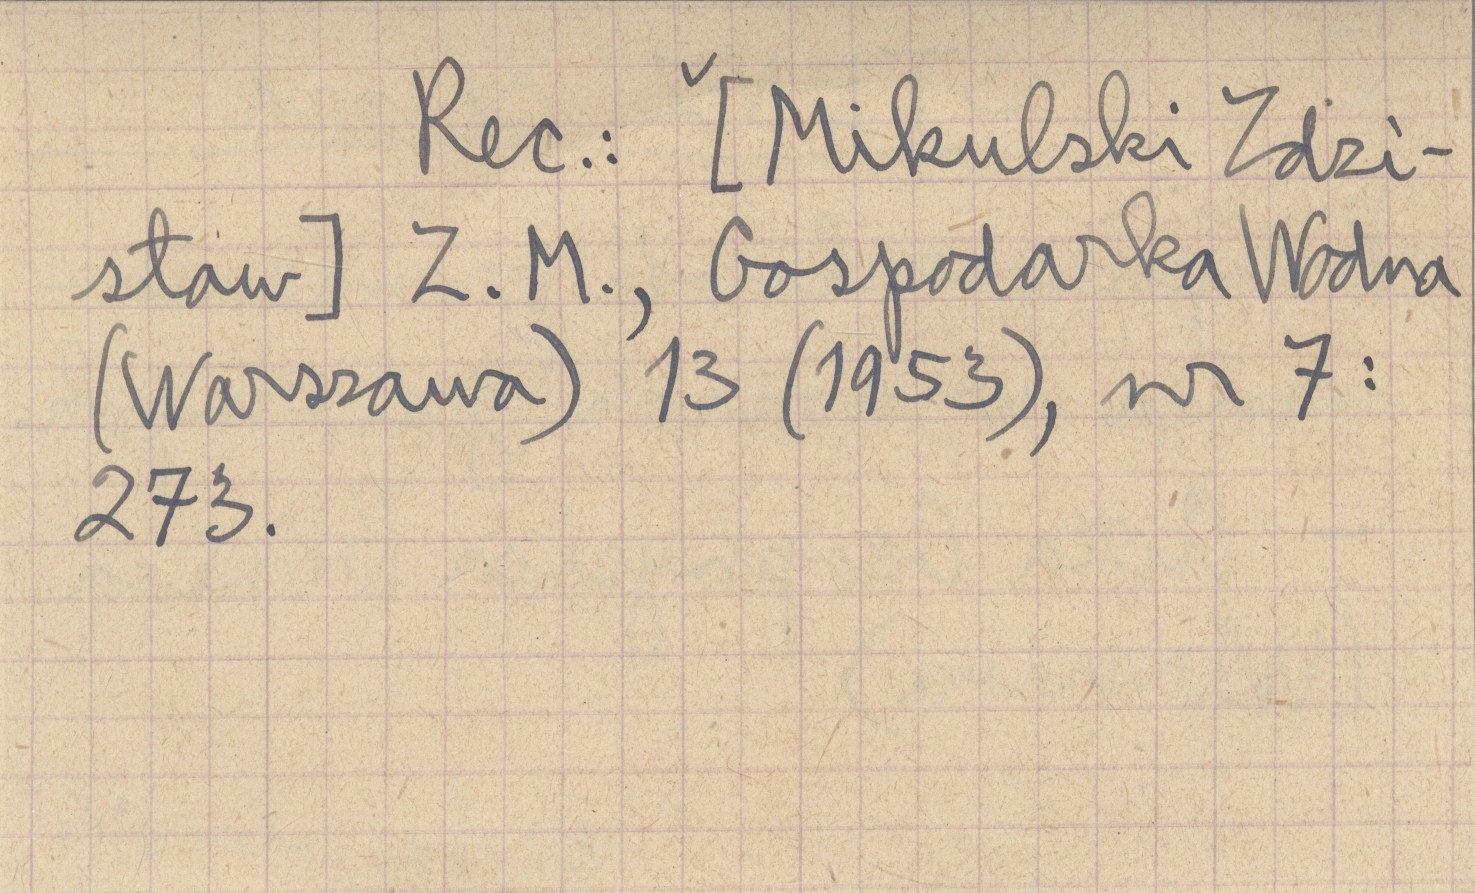 Rec.: ˇ[Mikulski Zdzi-
sław] Z. M., Gospodarka Wodna
(Warszawa) 13 (1953), nr 7:
273.